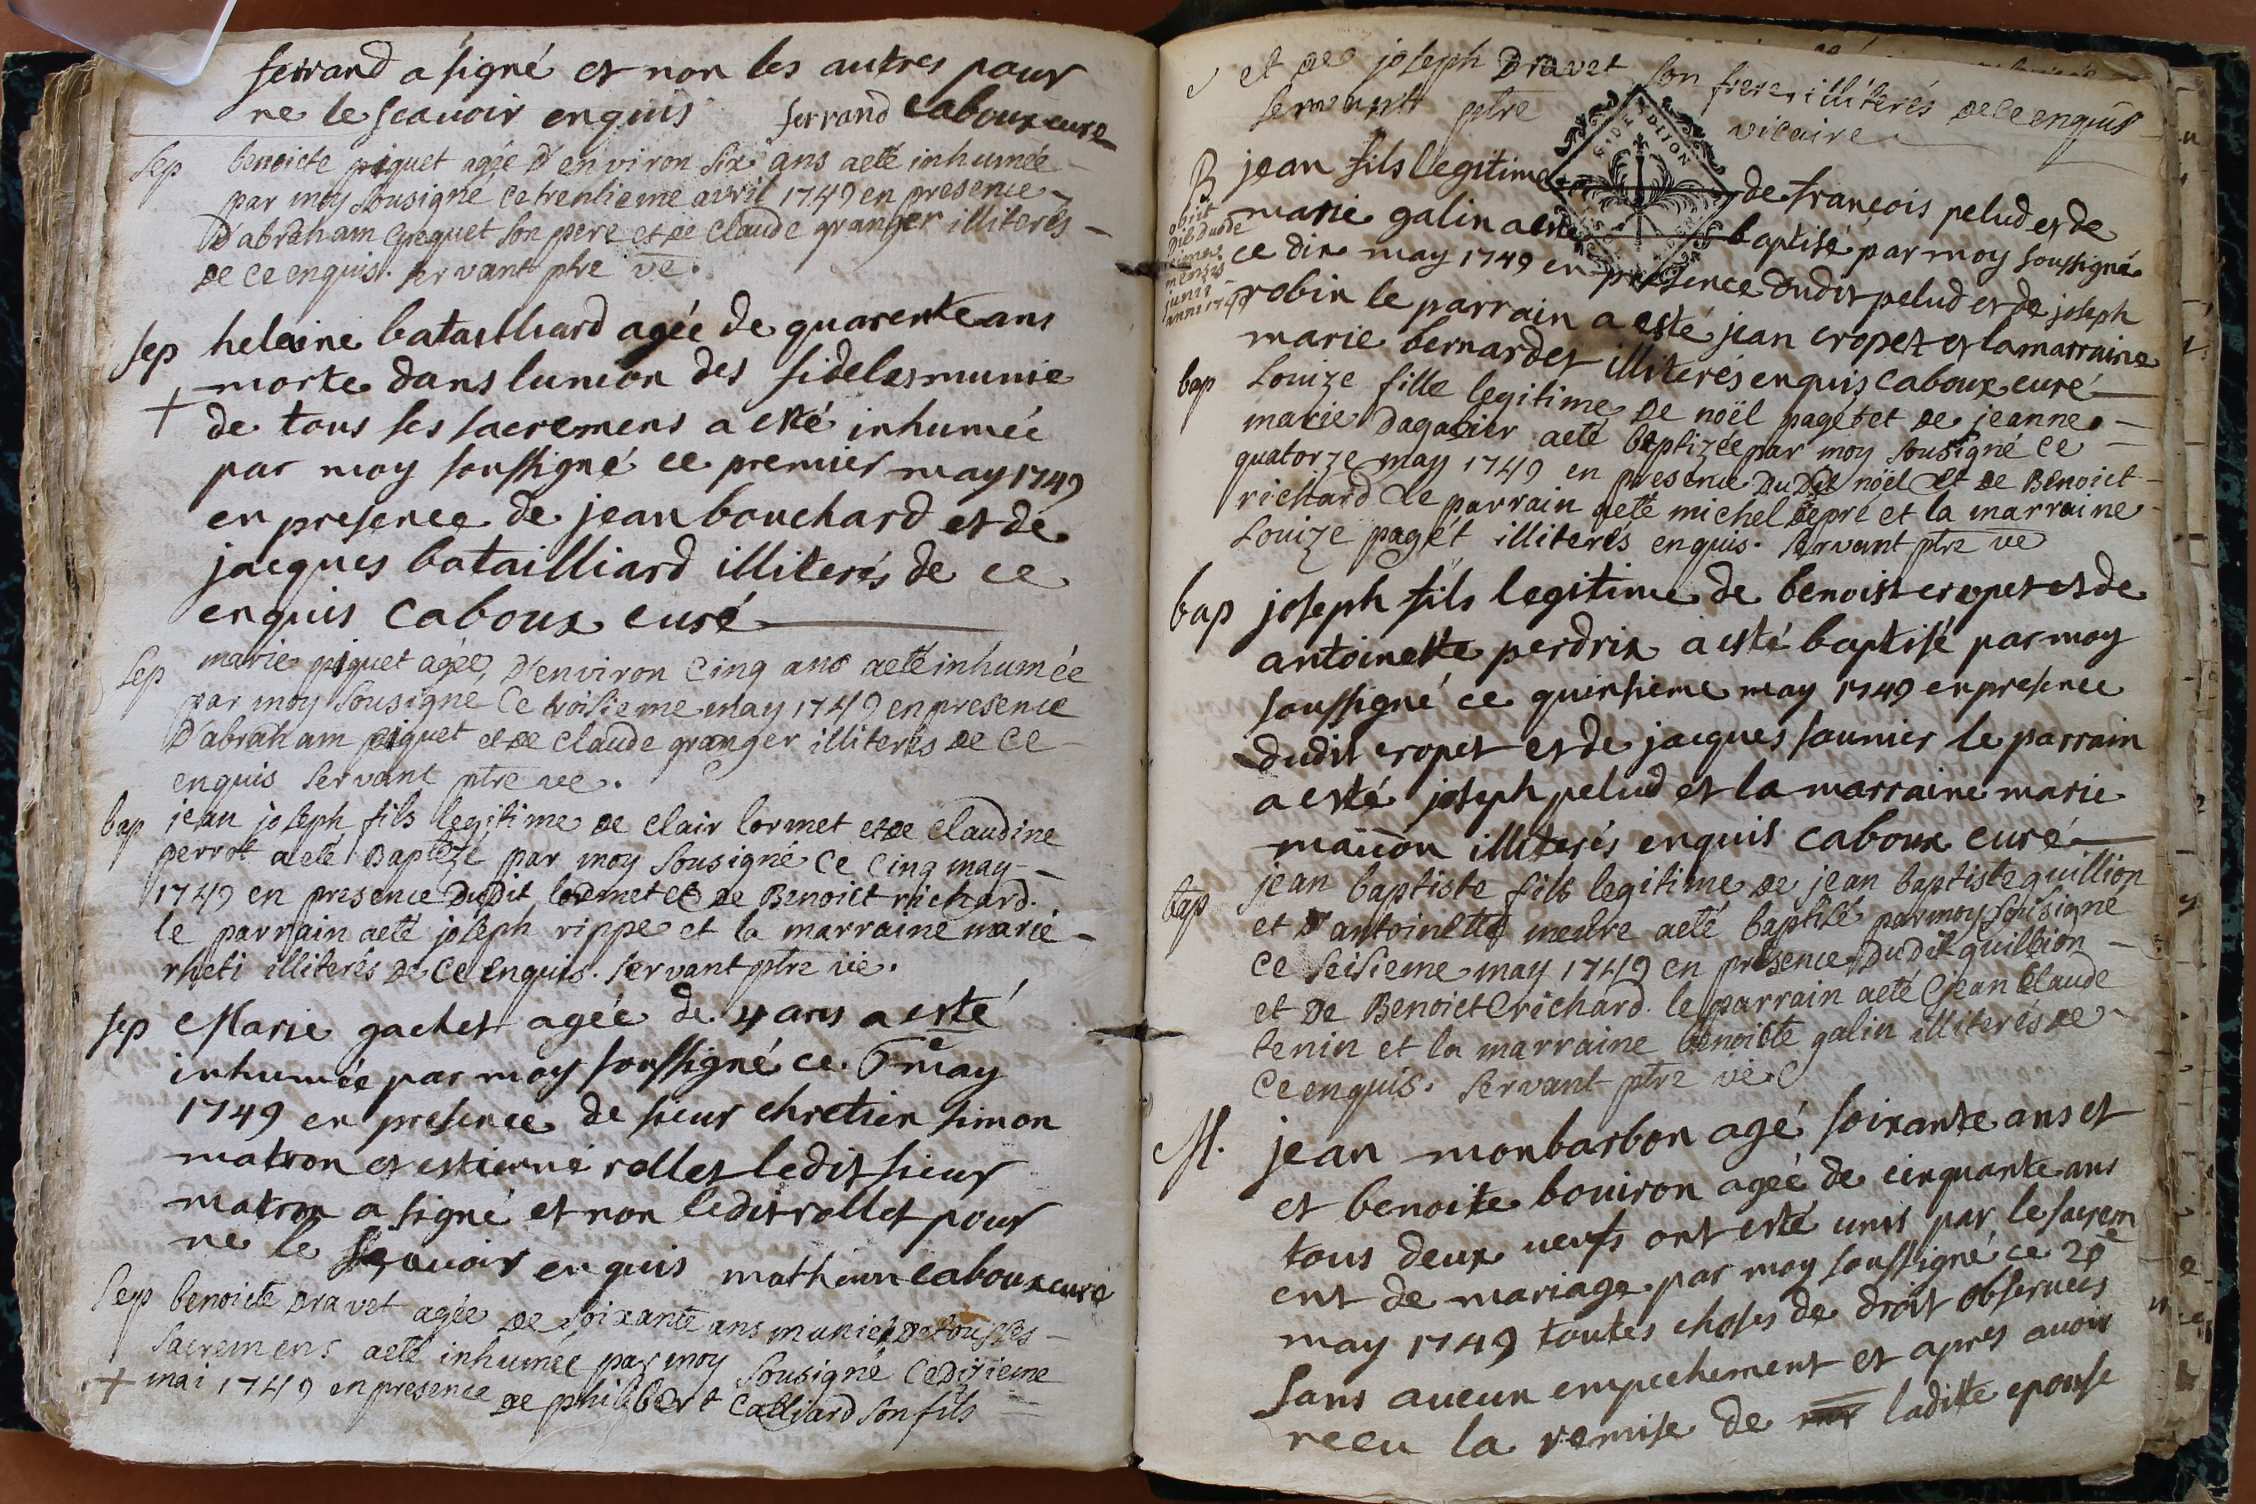 ferrand a signé et non les autres pour
ne le scauoir enquis ferrand Caboux curé
sep benoicte piquet agée D'environ six ans aeté inhumée
par moy sousigné ce trentieme avril 1749 en presence
D'abraham piquet son pere et de claude granger illiterés
de ce enquis. servant ptre ve.
sep helaine batailliard agée de quarente ans
morte dans lunion des fideles munie
de tous ses sacremens a esté inhumée
par moy soussigné ce premier may 1749
en presence de jean bouchard et de
jacques batailliard illiterés de ce
enquis Caboux curé
sep marie piquet agée D'environ cinq ans aeté inhumée
par moy sousigné Ce troisieme may 1749 en presence
D'abraham piquet et de claude granger illiterés de ce
enquis servant ptre ve.
bap jean joseph fils legitime de clair lormet et de claudine
perrot aeté Baptizé par moy sousigné Ce cinq may
1749 en presence Dudit lormet et de Benoict richard.
le parrain aeté joseph rippe et la marraine marie
rheti illiterés de ce enquis. servant ptre vie.
sep Marie gachet agée de 4 ans a esté
inhumée par moy soussigné ce 6e may
1749 en presence de sieur chretien simon
matron et estienne rollet ledit sieur
matron a signé et non ledit rollet pour
ne le scauoir enquis mathron Caboux curé
Sep benoicte Dravet agée de soixante ans munie de tous ses
sacremens aeté inhumée par moy sousigné ce disieme
mai 1749 en presence de philibert Calliard son fils
et de joseph Dravet son frere illiterés de ce enquis
servant ptre vicaire
B jean fils legitime de françois pelud et de
marie galin a esté baptisé par moy soussigné
ce dix may 1749 en presence dudit pelud et de joseph
robin le parrain a esté jean cropet et la marraine
marie bernardet illiterés enquis Caboux curé
obiit
junii
anni 1749
DIJON
bap Louize fille legitime de noël paget et de jeanne
marie Dagalier aeté baptizée par moy sousigné ce
quatorze may 1749 en presence Dudit noël et de Benoict
richard le parrain aeté michel depré et la marraine
Louize pagét illiterés enquis. servant ptre ve
bap joseph fils legitime de benoist cropet et de
antoinette perdrix a esté baptisé par moy
soussigné ce quinsieme may 1749 en presence
dudit cropet et de jacques saunier le parrain
a esté joseph pelud et la marraine marie
mauuon illiterés enquis Caboux curé
bap jean baptiste fils legitime de jean baptiste quillion
et D'antoinette meure aeté baptisé par moy sousigné
ce seisieme may 1749 en presence Dudit quillion
et De Benoict richard. le parrain aeté jean claude
tenin et la marraine benoicte galin illiterés de
ce enquis. servant ptre ve
M. jean monbarbon agé soixante ans et
et benoite bouiron agée de cinquante ans
tous deux veufs ont esté unis par le sacrem
ent de mariage par moy soussigné ce 20e
may 1749 toutes choses de droit obseruées
sans aucun empechement et apres auoir
receu la remise de ladite epouse